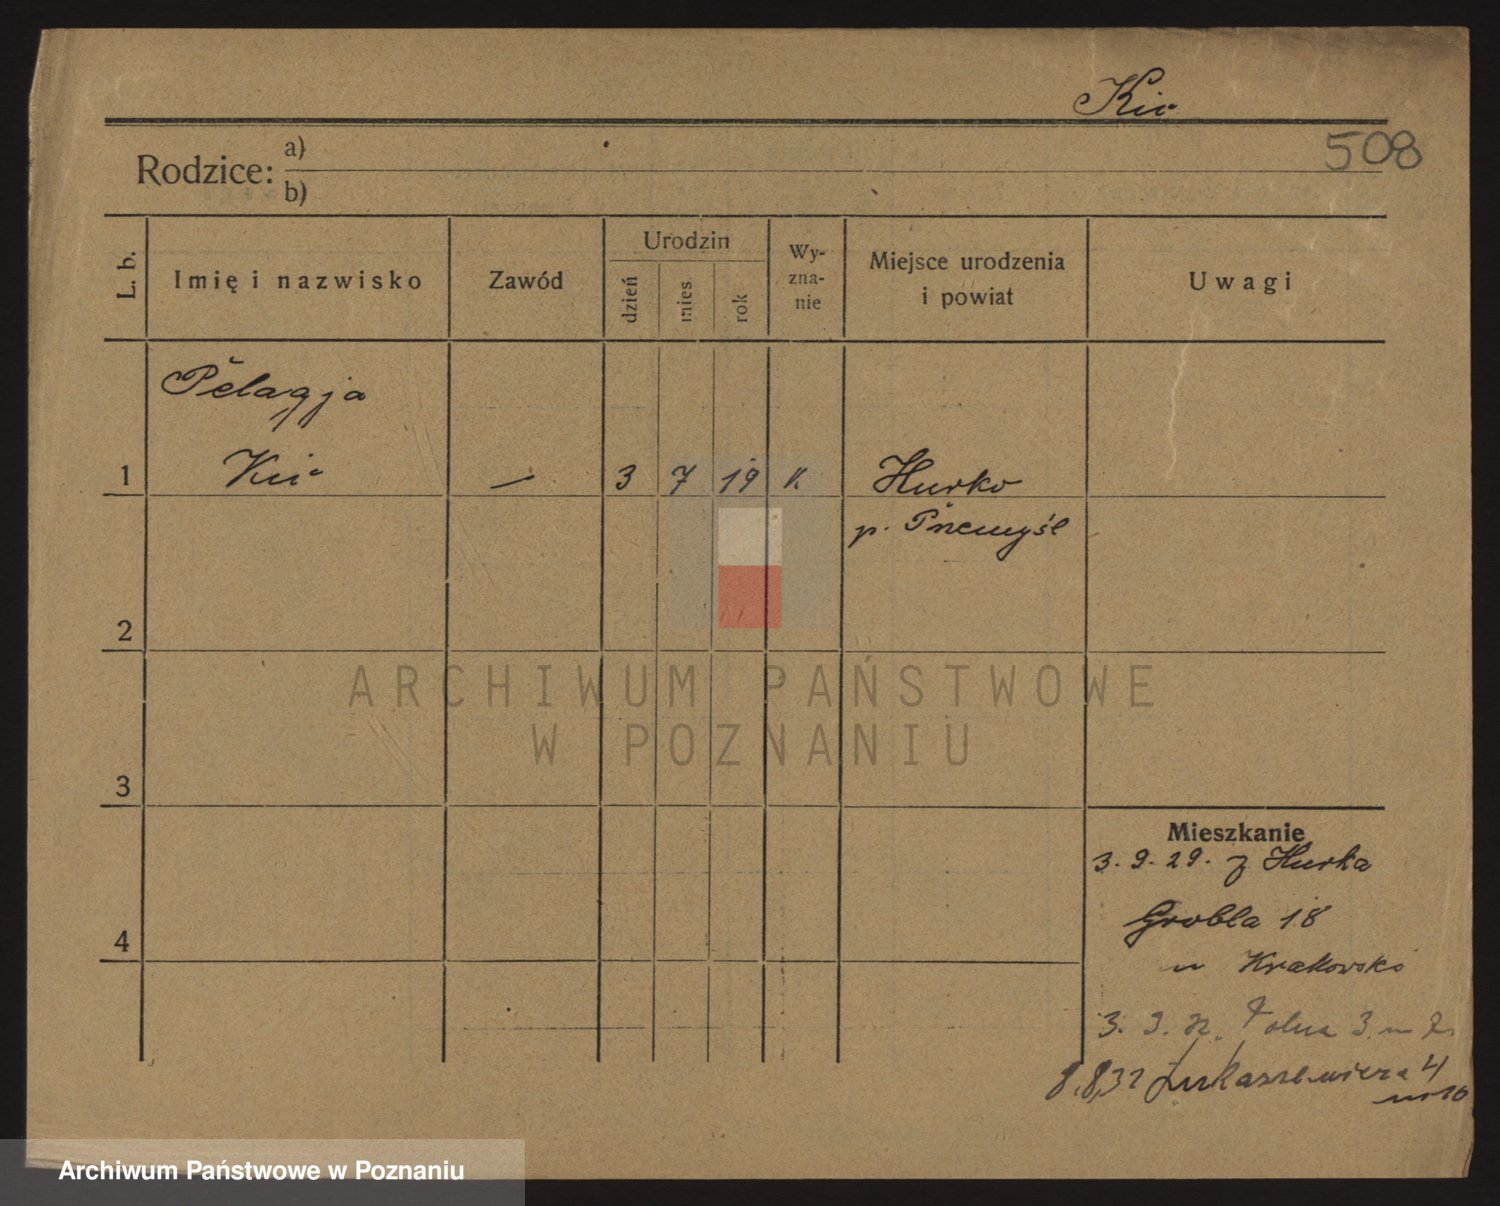 Kic
508
Rodzice: a)
b)
L. b.
Imię i nazwisko
Zawód
Urodzin
dzień
mies
rok
Wy-
zna-
nie
Miejsce urodzenia
i powiat
Uwagi
Pelagja
1 Kic — 3 7 19 k. Hurko
p. Przemyśl
2
3
4
Mieszkanie
3. 9. 29. z Hurka
Grobla 18
u Krakowski
3. 9.
8.8.32 Łukaszewicza 4
m 10
ARCHIWUM PAŃSTWOWE
W POZNANIU
Archiwum Państwowe w Poznaniu